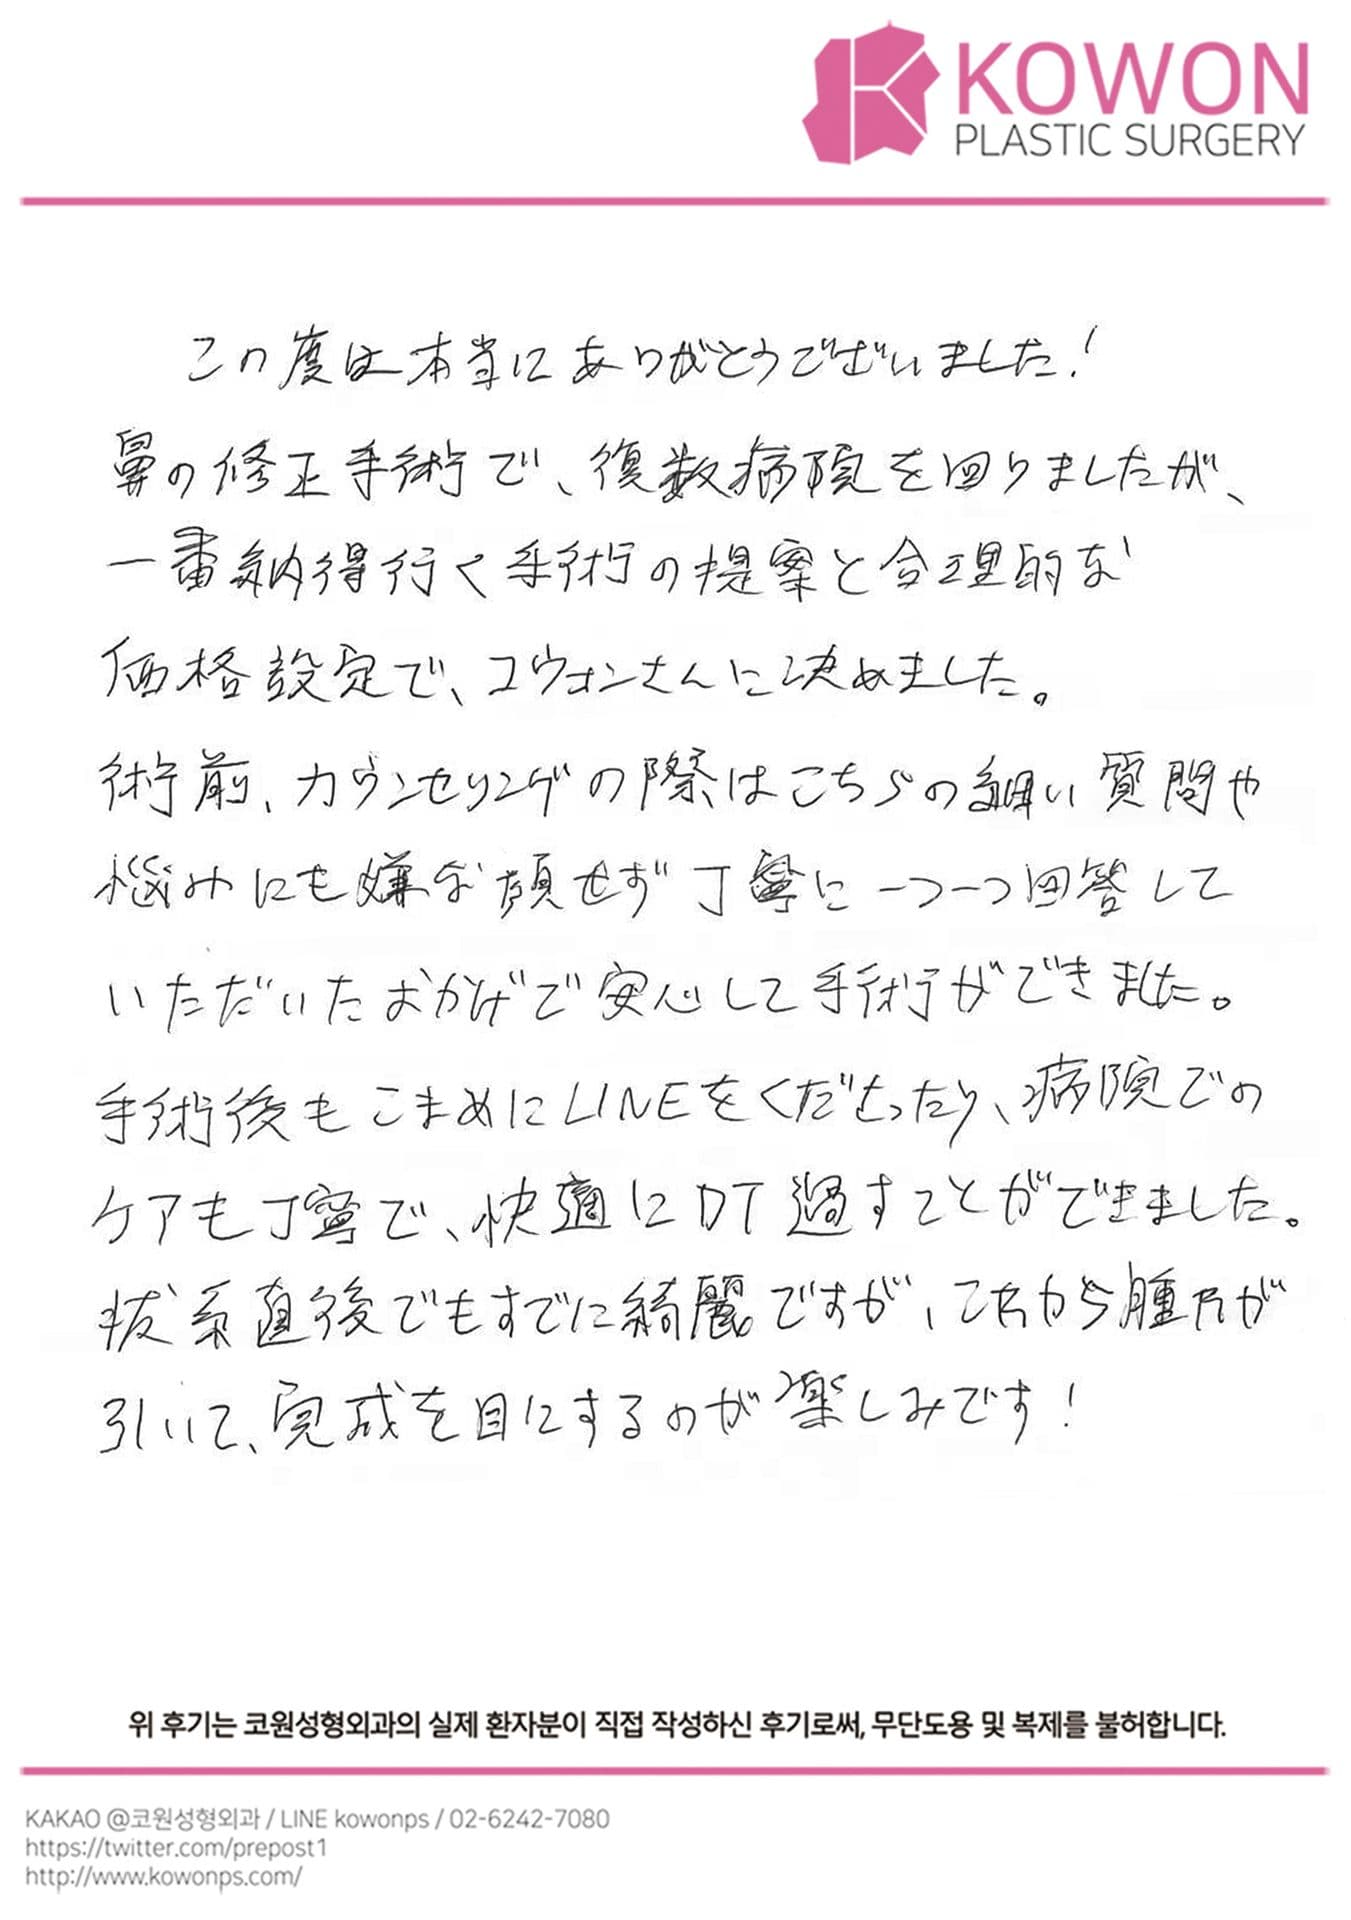 KOWON
PLASTIC SURGERY
この度は本当にありがとうございました!
鼻の修正手術で、復数病院を回りましたが、
一番納得行く手術の提案と合理的な
価格設定で、コウォンさんに決めました。
術前、カウンセリングの際はこちらの細い質問や
悩みにも嫌な顔せず丁寧に一つ一つ回答して
いただいたおかげで安心して手術ができました。
手術後もこまめにLINEをくださったり、病院での
ケアも丁寧で、快適にDT過すことができました。
抜糸直後でもすでに綺麗ですが、これから腫れが
引いて、完成を目にするのが楽しみです!
위 후기는 코원성형외과의 실제 환자분이 직접 작성하신 후기로써, 무단도용 및 복제를 불허합니다.
KAKAO @코원성형외과 / LINE kowonps / 02-6242-7080
https://twitter.com/prepost1
http://www.kowonps.com/